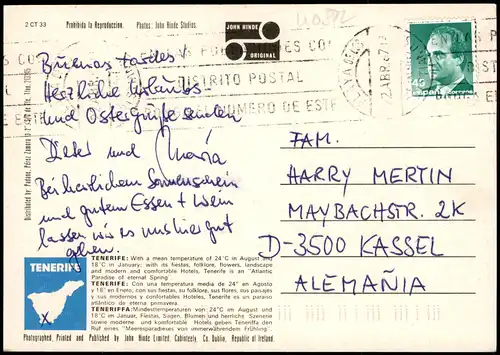 2 CT 33
Prohibida la Reproduccion.
Photos: John Hinde Studios.
JOHN HINDE
ORIGINAL
DISTRITO POSTAL
NUMERO DE ESTE
Buenas tardes!
Herzliche Urlaubs
und Ostergrüße senden
Detlef und Maria
Bei herrlichem Sonnenschein
und gutem Essen + Wein
lassen wir es uns hier gut
gehen.
FAM.
HARRY MERTIN
MAYBACHSTR. 2K
D-3500 KASSEL
ALEMAÑIA
TENERIFE
X
TENERIFE: With a mean temperature of 24°C in August and
18°C in January; with its fiestas, folklore, flowers, landscape
and modern and comfortable Hotels, Tenerife is an "Atlantic
Paradise of eternal Spring"
TENERIFE: Con una temperatura media de 24° en Agosto
y 18° en Enero, con sus fiestas, su folklore, sus flores, sus paisajes
y sus modernos y comfortables Hoteles, Tenerife es un paraíso
atlántico de eterna primavera.
TENERIFFA: Mindestemperaturen von 24°C em August und
18°C im Januar, Fiestas, Sagen, Blumen und herrliche Szenerie
sowie moderne und komfortable Hotels geben Teneriffa den
Ruf eines "Meeresparadieses von immerwährendem Frühling"
Photographed, Printed and Published by John Hinde Limited, Cabinteely, Co. Dublin, Republic of Ireland.